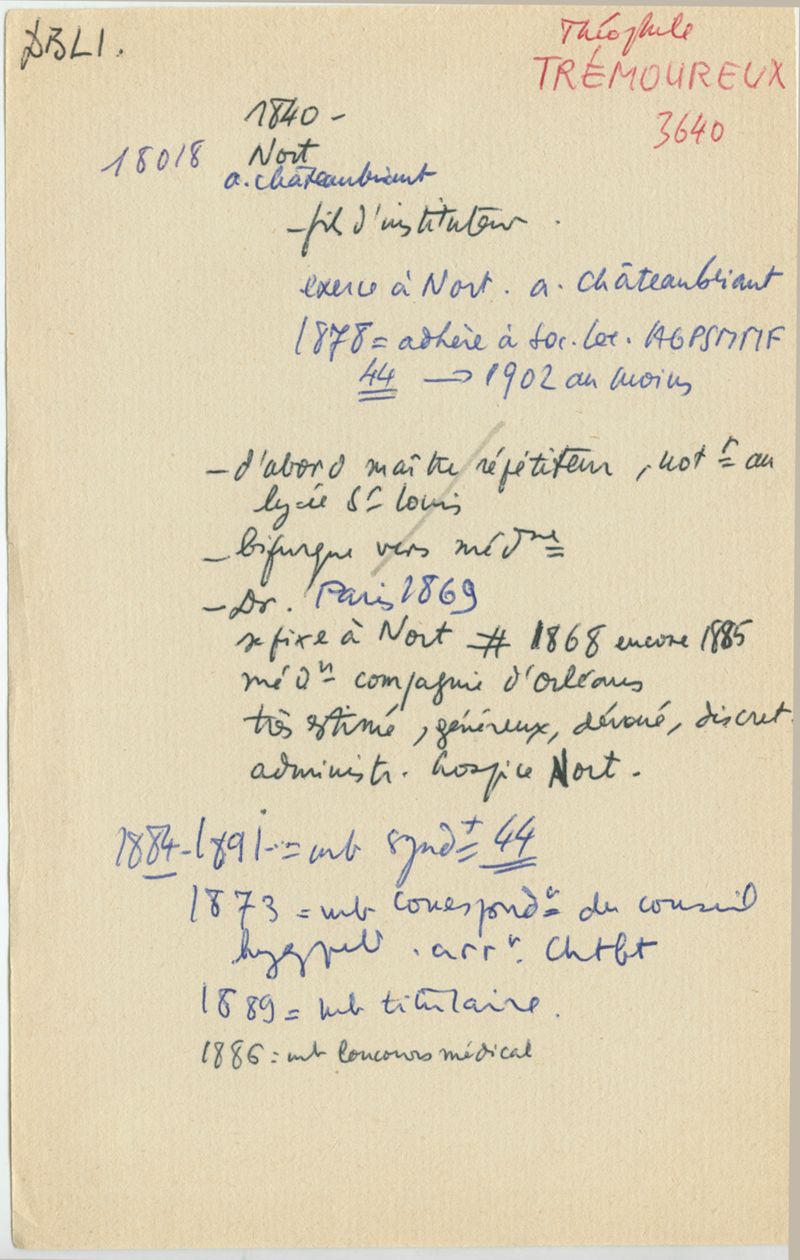 DBLI.
Théophile
TRÉMOUREUX
3640
1840 -
18018 Nort
a. châteaubriant
- fils d'instituteur .
exerce à Nort . a . Châteaubriant
1878 = adhère à Soc. loc. AGPSMMF
44 → 1902 au moins
- d'abord maître répétiteur , not t au
lycée St Louis
- bifurque vers médne
- Dr. Paris 1869
se fixe à Nort # 1868 encore 1885
médn compagnie d'Orléans
très estimé , généreux, dévoué, discret.
administr. hospice Nort .
1884-1891.. = mb syndt 44
1873 = mb correspondt du conseil
hyg . arrt. Chtbt
1889 = mb titulaire .
1886 : mb Concours médical